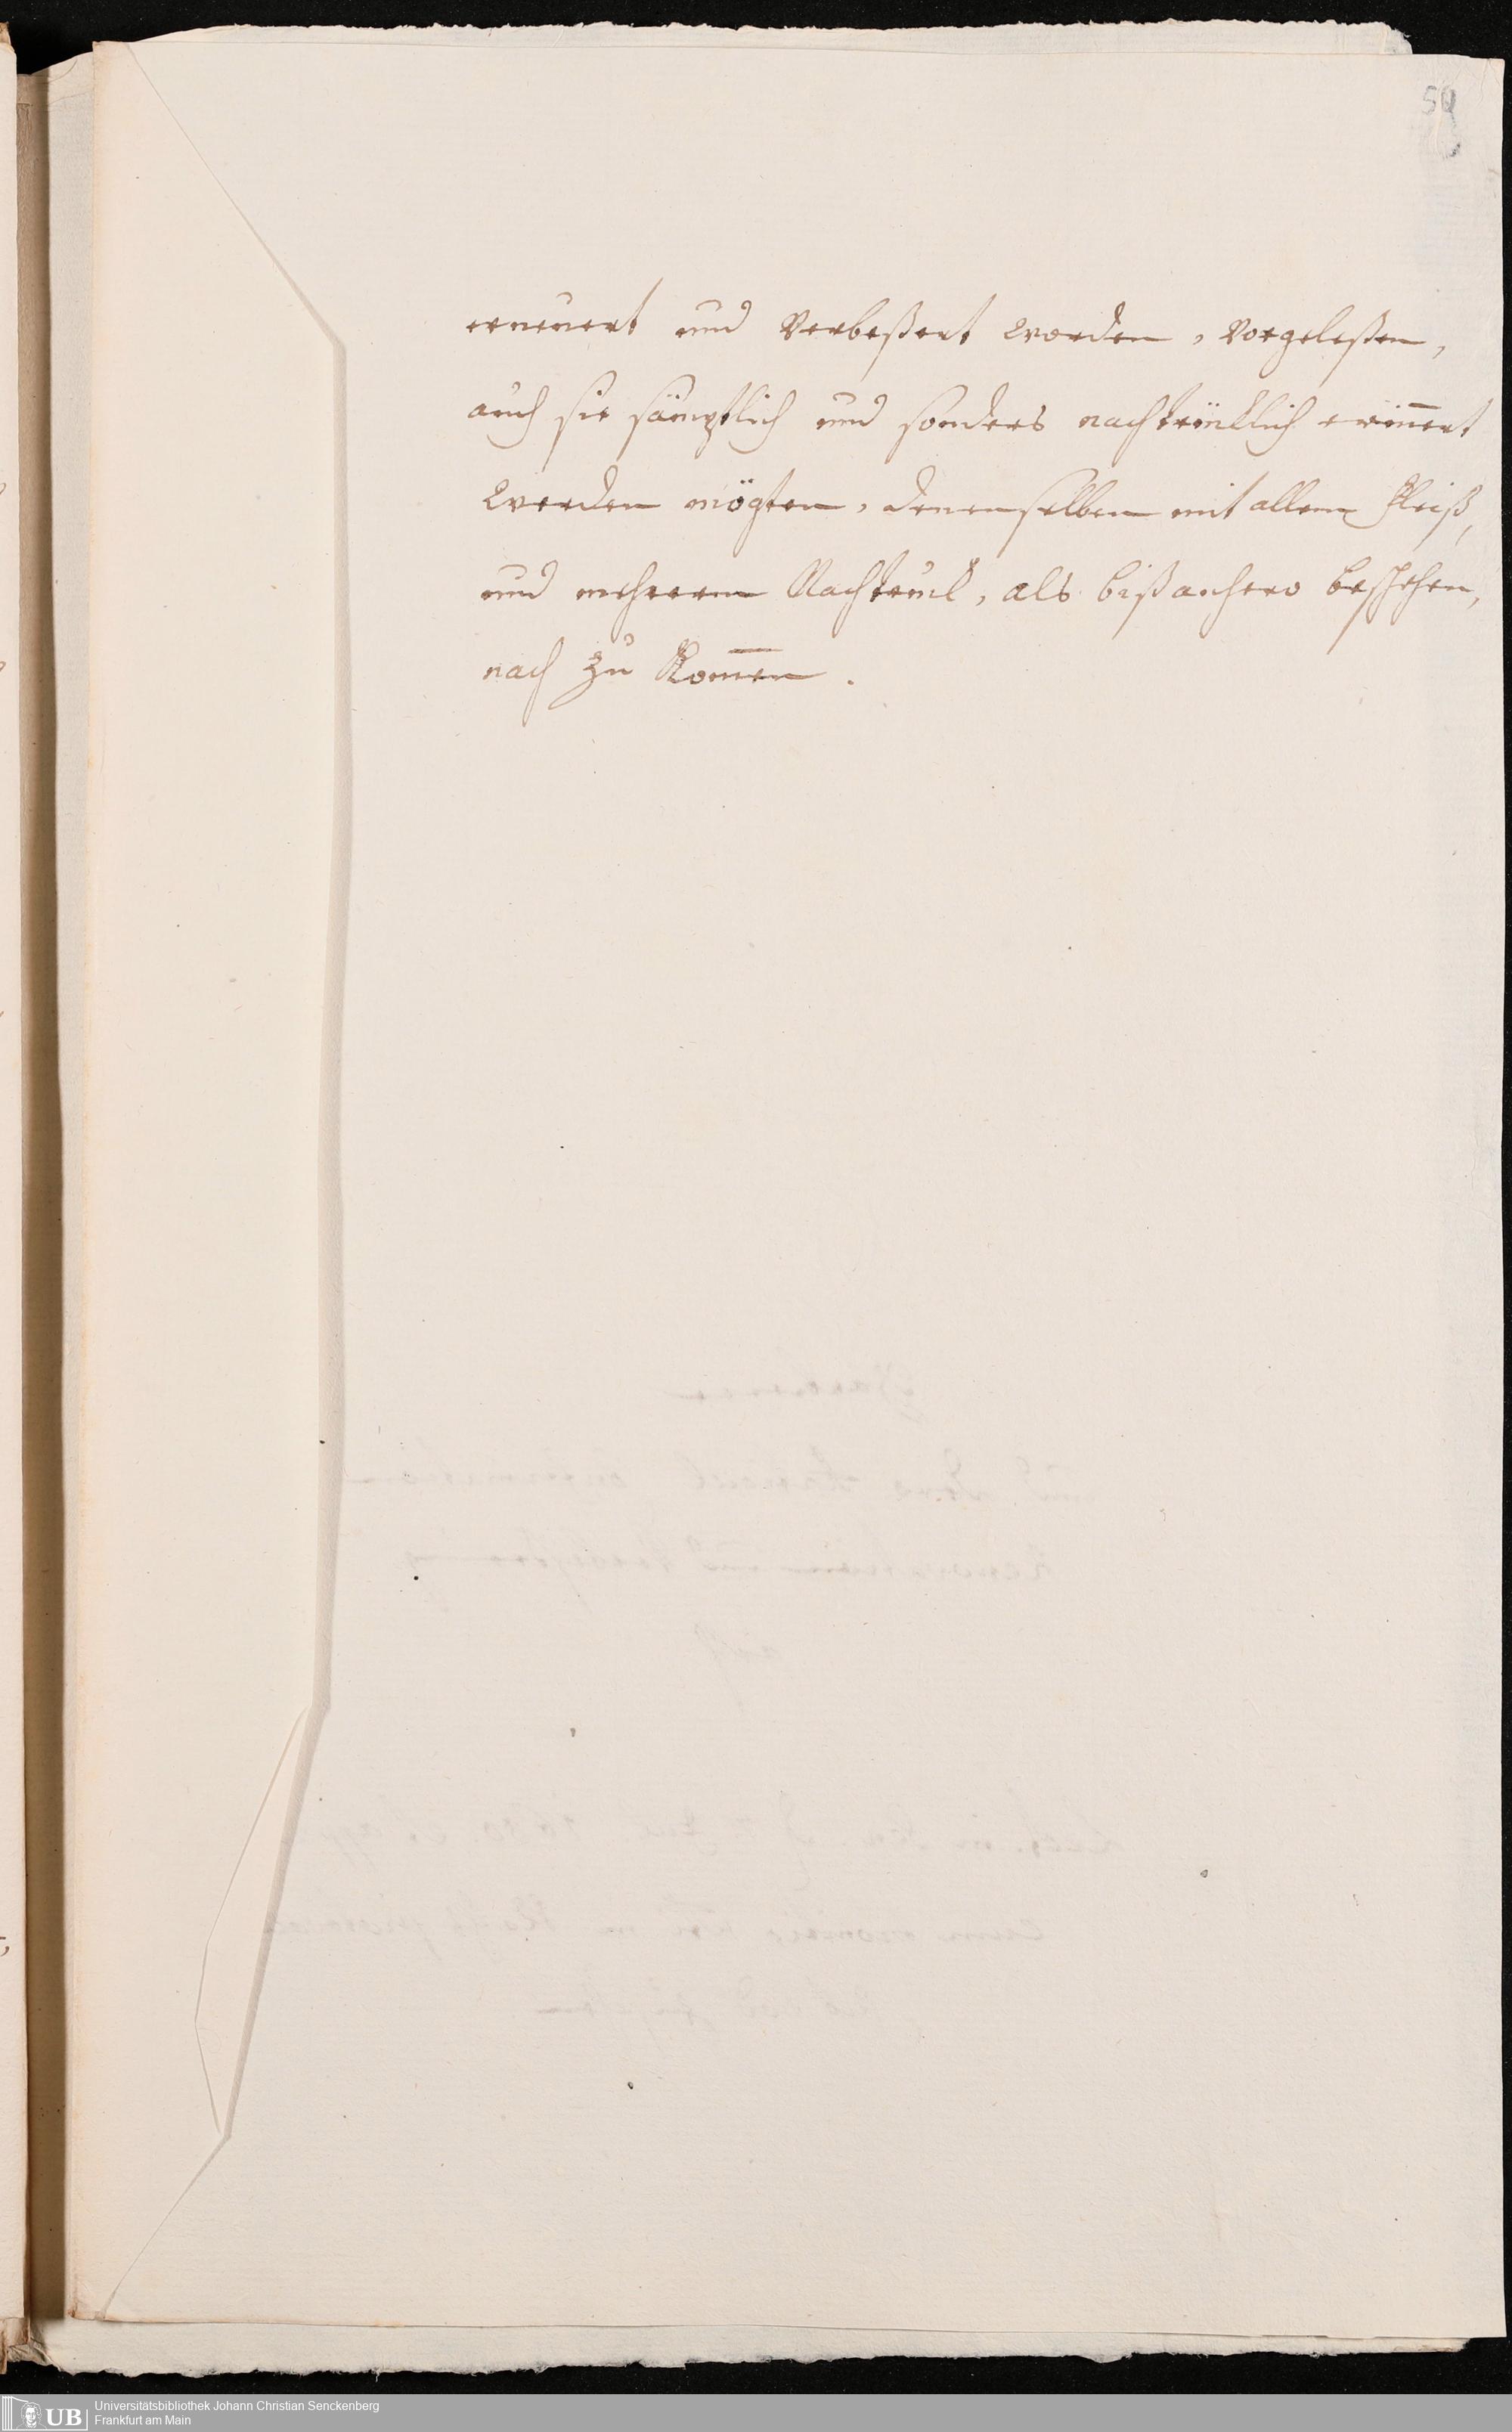 50
erneuert und Verbeßert worden, Vorgeleßen,
auch sie sämptlich und sonders nachtrücklich erin̄ert
werden mögten, denenselben mit allem Fleiß,
und mehrerm Nachtruck, als bißanhero beschehen,
nach zu Kom̄en.
Universitätsbibliothek Johann Christian Senckenberg
Frankfurt am Main
UB